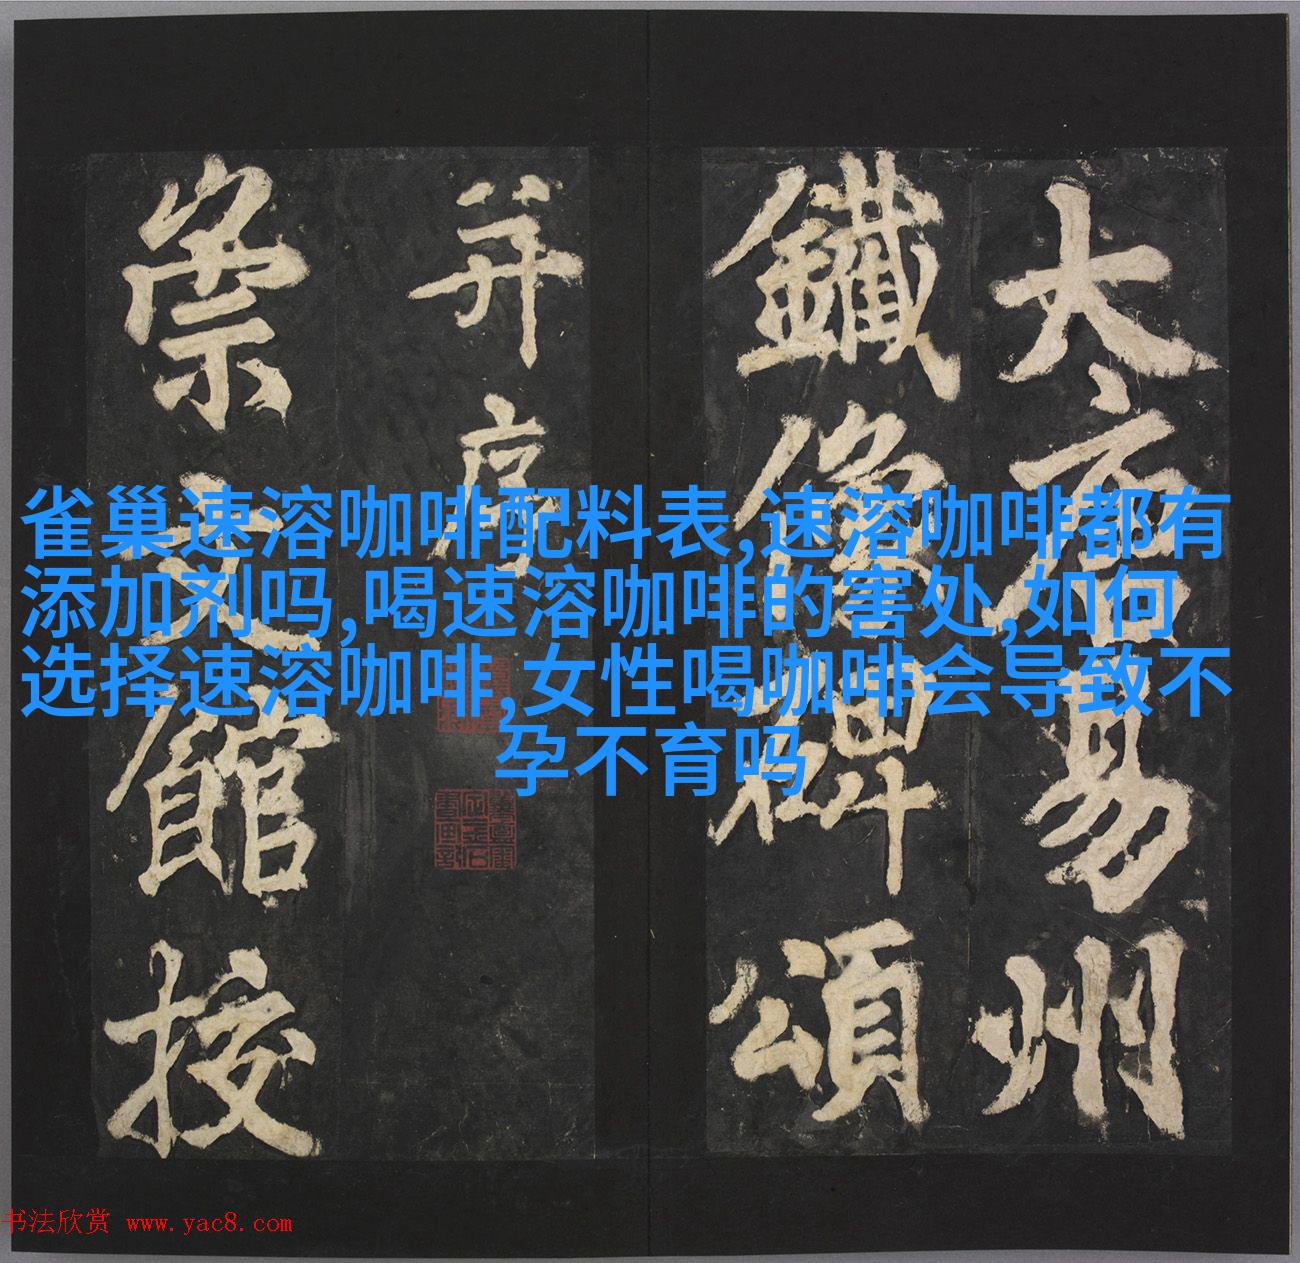 大唐易州
鐵像碑頌
并序
崇文館挍
雀巢速溶咖啡配料表,速溶咖啡都有
添加剂吗,喝速溶咖啡的害处,如何
选择速溶咖啡,女性喝咖啡会导致不
孕不育吗
书法欣赏 www.yac8.com